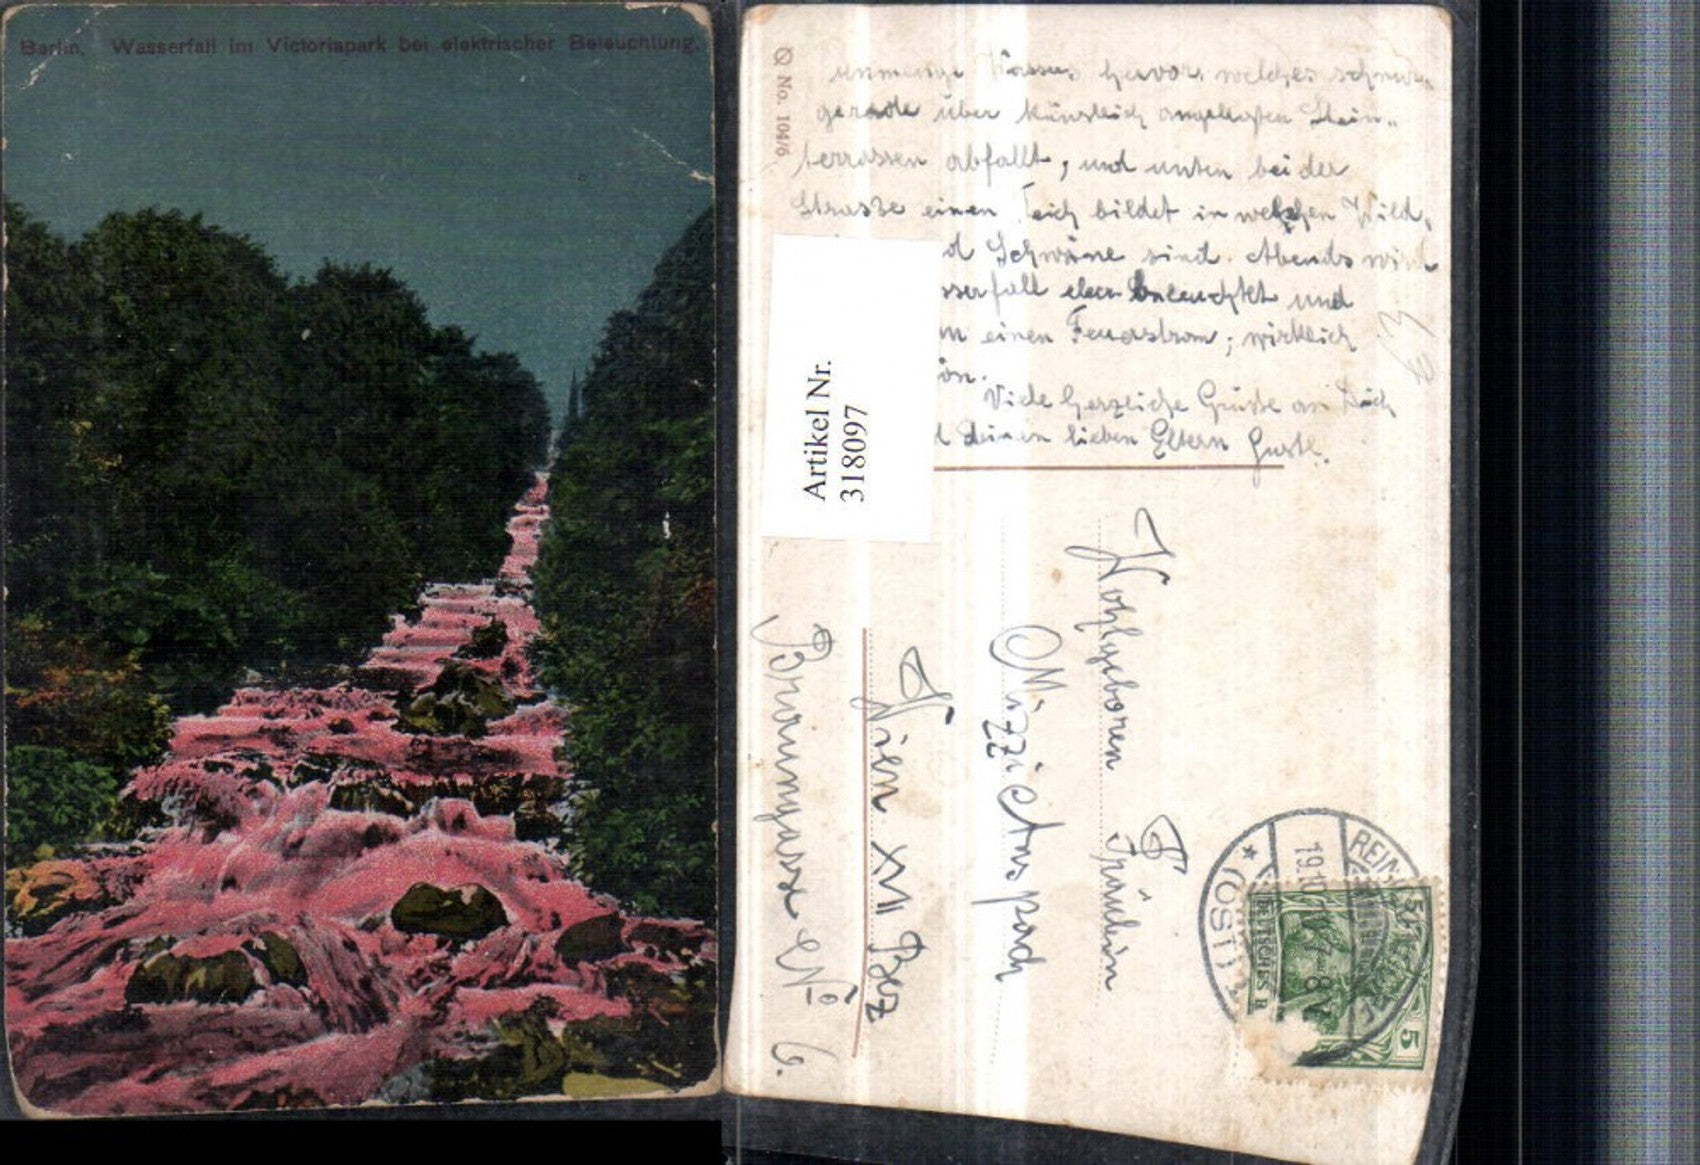 Berlin. Wasserfall im Victoriapark bei elektrischer Beleuchtung.
No. 104/6
unmenge Wassers hervor, welches schnur-
gerade über künstlich angelegten Stein-
terrassen abfällt, und unten bei der
Strasse einen Teich bildet in welchen Wild,
d Schwäne sind. Abends wird
sserfall beleuchtet und
m einen Feuerstrom; wirklich
ön.
Viele herzliche Grüsse an Dich
d deinen lieben Eltern Gustl.
Artikel Nr.
318097
Wohlgeboren Fräulein
Mizzi Anspach
Wien XVI Bez
Brunngasse No 6.
REIN
(OST)
19.10
DEUTSCHES R
5